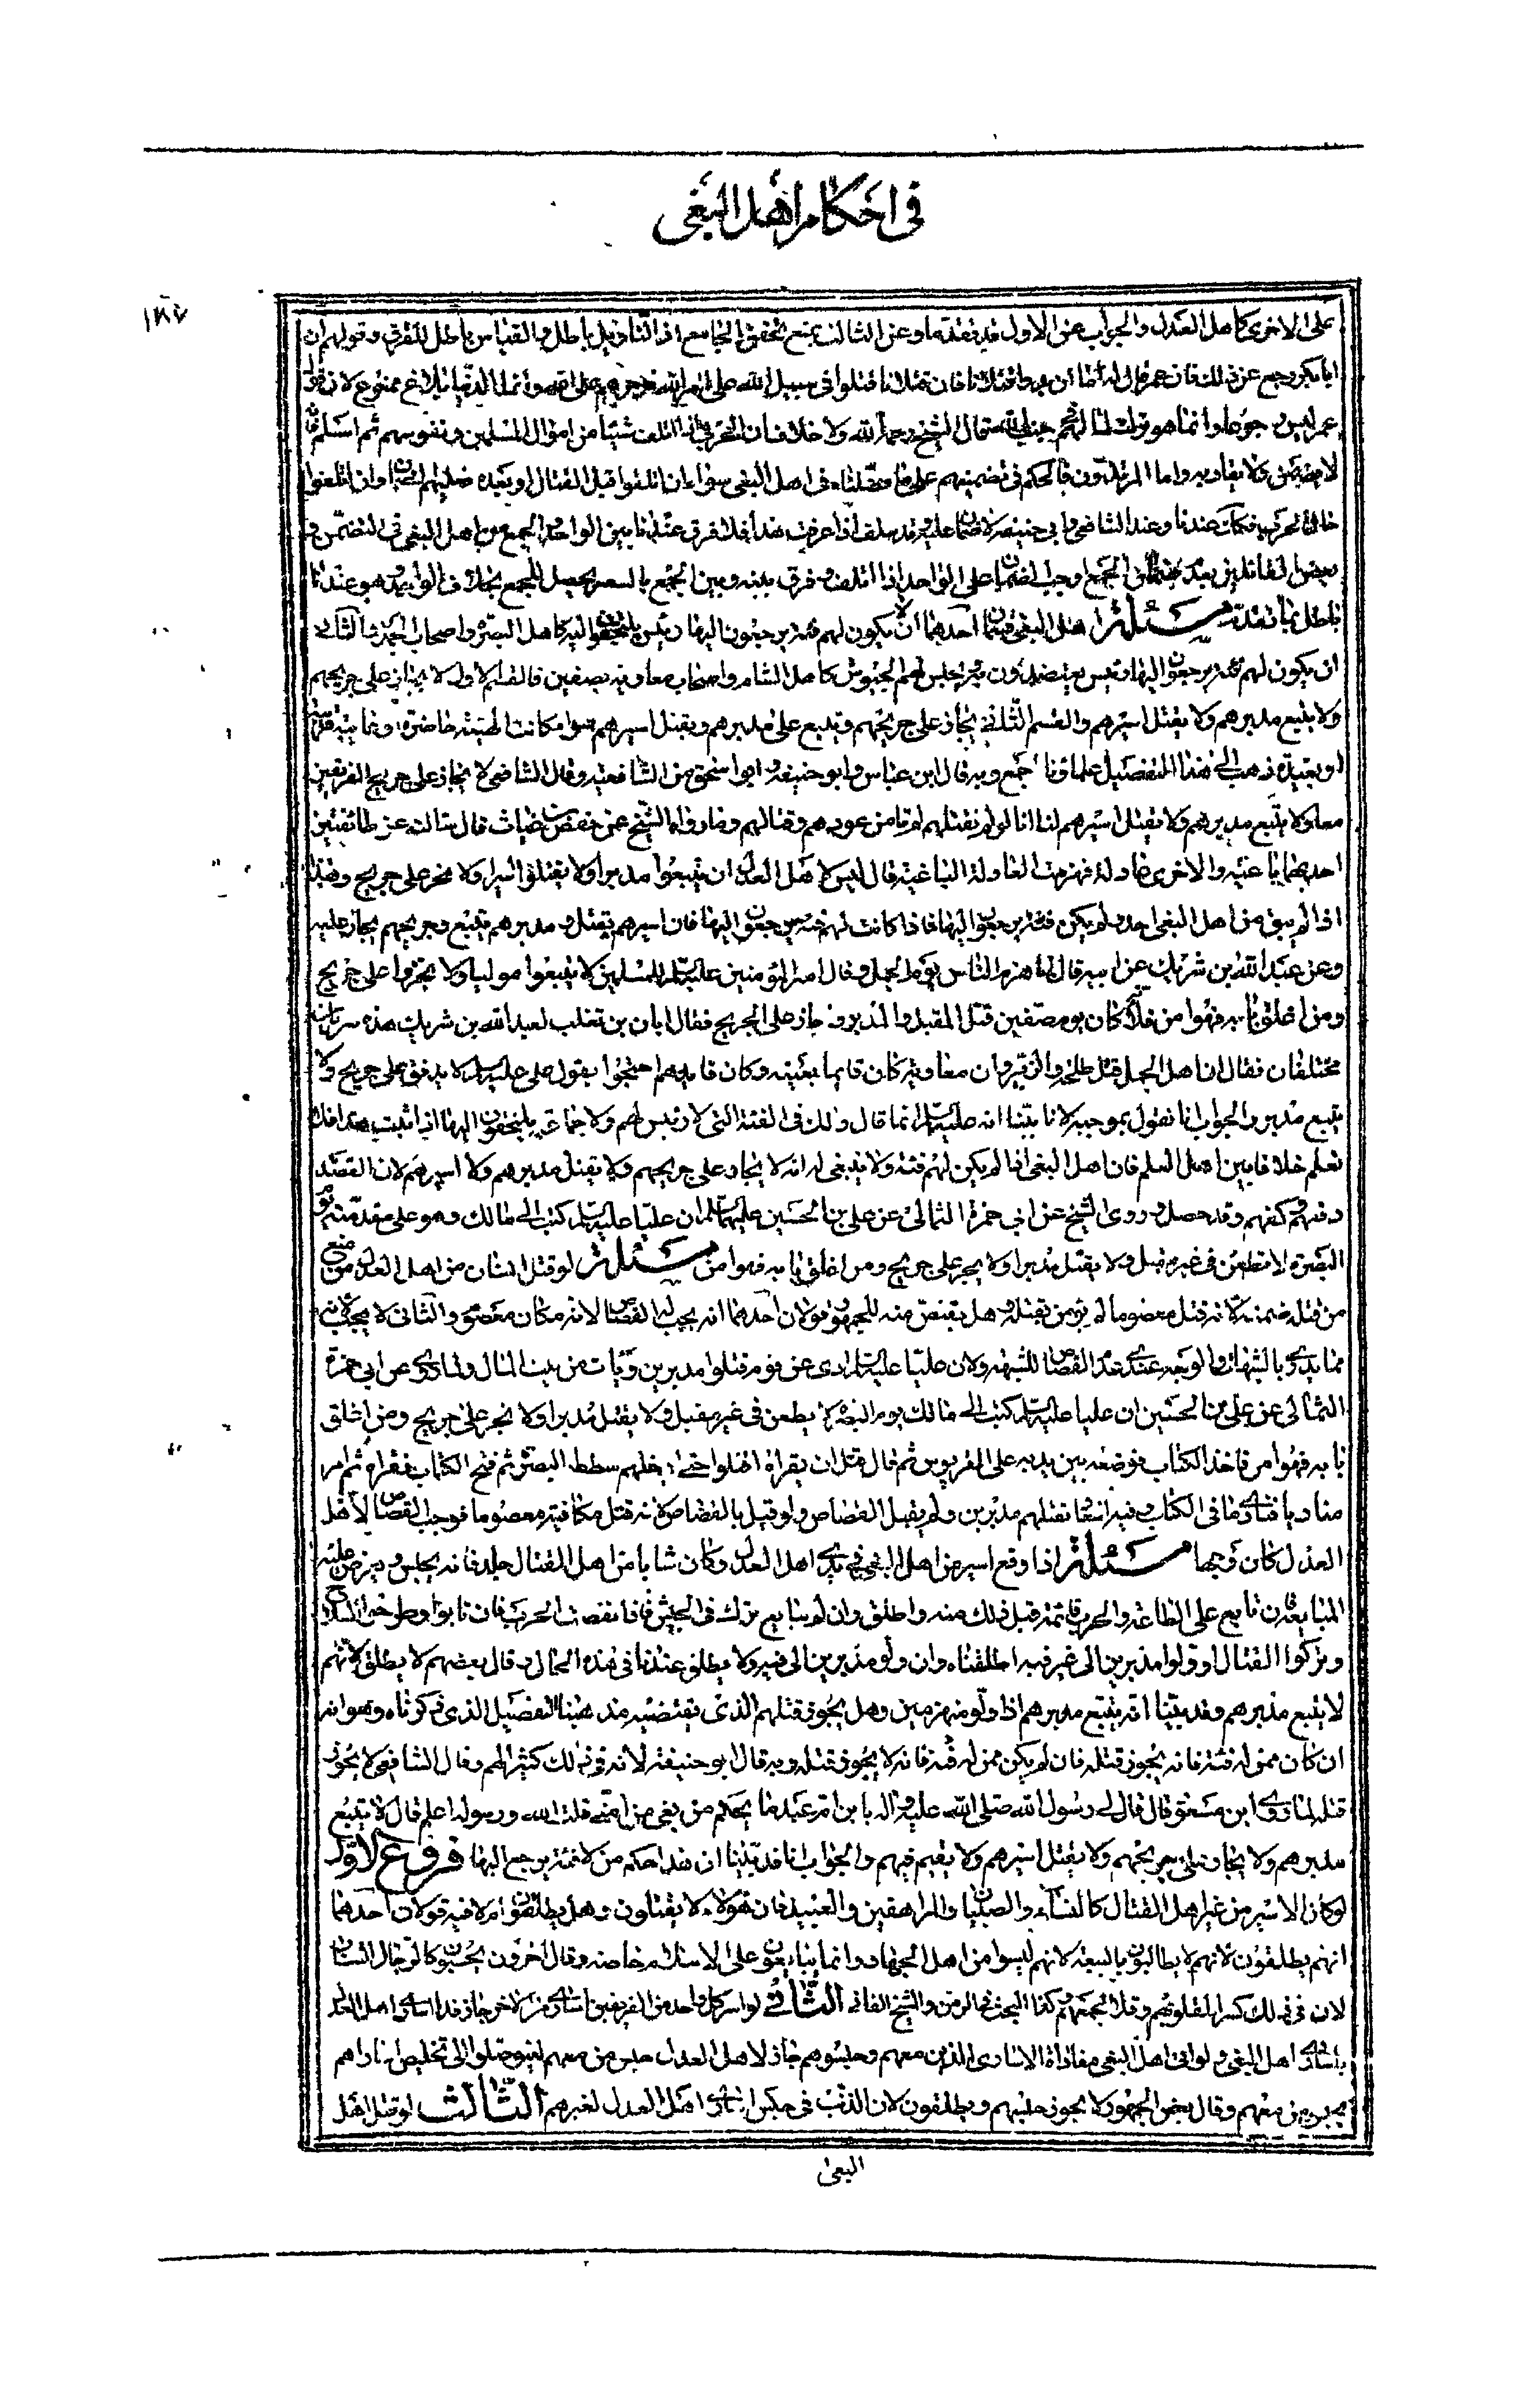 في احكام اهل البغي
١٨٧
على الاخرى كاهل العدل والجواب عن الاول قد تقدم وعن الثالث بمنع تحقق الجامع اذ التاويل باطل والقياس باطل للفرق وقولهم ان
ابا بكر رجع عن ذلك فان عمر قال له اما ان يدوا قتلانا فان قتلانا قتلوا في سبيل الله على امر الله اجرهم على الله وانما الدنيا بلاغ ممنوع لان قول
عمر ليس رجوعا وانما هو ترك قال الشيخ رحمه الله ولا خلاف ان الحربي اذا اتلف شيئا من اموال المسلمين ونفوسهم ثم اسلم فانه
لا يضمن ولا يقاد به واما المرتدون فالحكم في تضمينهم على ما فصلناه في اهل البغي سواء ان اتلفوا قبل القتال او بعده ضمانهم وان اتلفوا
حال الحرب فكك عندنا وعند الشافعي وابي حنيفة لا ضمان عليهم وقد سلف اذا عرفت هذا فلا فرق عندنا بين الواحد والجمع من اهل البغي في التضمين و
بعض القائلين بعدم ضمان الجمع اوجب الضمان على الواحد اذا اتلف وفرق بينه وبين الجمع بالعسر يحصل للجمع بخلاف الواحد وهو عندنا
باطل بما تقدم مسئلة اهل البغي قسمان احدهما ان لا يكون لهم فئة يرجعون اليها ورئيس يلتجئون اليه كاهل البصرة واصحاب الجمل والثاني
ان يكون لهم فئة يرجعون اليها ورئيس يعتضدون به ويجيش لهم الجيوش كاهل الشام واصحاب معاوية بصفين فالقسم الاول لا يجاز على جريحهم
ولا يتبع مدبرهم ولا يقتل اسيرهم والقسم الثاني يجاز على جريحهم ويتبع على مدبرهم ويقتل اسيرهم سواء كانت الفئة حاضرة او غايبة قريبة
او بعيدة ذهب الى هذا التفصيل علماؤنا اجمع وبه قال ابن عباس وابو حنيفة وابو اسحق من الشافعية وقال الشافعي لا يجاز على جريح الفريقين
معا ولا يتبع مدبرهم ولا يقتل اسيرهم لنا انا لو لم نقتلهم لم نامن عودهم وقتالهم وما رواه الشيخ عن حفص بن غياث قال سالته عن طائفتين
احدهما باغية والاخرى عادلة فهزمت العادلة الباغية قال ليس لاهل العدل ان يتبعوا مدبرا ولا يقتلوا اسيرا ولا يجهزوا على جريح وهذا
اذا لم يبق من اهل البغي احد ولم يكن فئة يرجعون اليها فاذا كانت لهم فئة يرجعون اليها فان اسيرهم يقتل ومدبرهم يتبع وجريحهم يجاز عليه
وعن عبد الله بن شريك عن ابيه قال لما هزم الناس يوم الجمل قال امير المؤمنين عليه السلام للمسلمين لا يتبعوا موليا ولا يجهزوا على جريح
ومن اغلق بابه فهو امن فلما كان يوم صفين قتل المقبل والمدبر واجاز على الجريح فقال ابان بن تغلب لعبد الله بن شريك هذه سيرتان
مختلفتان فقال ان اهل الجمل قتل طلحة والزبير وان معاوية كان قايما بعينه وكان قايدهم احتجوا بقول علي عليه السلام لا يدفف على جريح ولا
يتبع مدبر والجواب انا نقول بموجبه لانا بينا انه عليه السلام انما قال ذلك في الفئة التي لا رئيس لهم ولا جماعة يلتجئون اليها اذا ثبت هذا فلا
نعلم خلافا بين اهل العلم فان اهل البغي اذا لم يكن لهم فئة ولا ينبغي له انه لا يجاز على جريحهم ولا يقتل مدبرهم ولا اسيرهم لان القصد
دفعهم وكفهم وقد حصل وروى الشيخ عن ابي حمزة الثمالي عن علي بن الحسين عليهما السلام ان عليا عليه السلام كتب الى مالك وهو على مقدمته يوم
البصرة الا تطعن في غير مقبل ولا يقتل مدبرا ولا يجهز على جريح ومن اغلق بابه فهو امن مسئلة لو قتل انسان من اهل العدل من منع
من قتله ضمنه لانه قتل معصوما لم يؤمر بقتله وهل يقتص منه للجمهور قولان احدهما انه يجب له القصاص لانه مكان معصوم والثاني لا يجب لانه
مما يدرء بالشبهات فالوجه عندي عدم القصاص للشبهة ولان عليا عليه السلام ادى عن قوم قتلوا مدبرين ديات من بيت المال ولما روي عن ابي حمزة
الثمالي عن علي بن الحسين ان عليا عليه السلام كتب الى مالك يوم البصرة لا يطعن في غير مقبل ولا يقتل مدبرا ولا يجهز على جريح ومن اغلق
بابه فهو امن فاخذ الكتاب فوضعه بين يديه على القربوس ثم قال قبل ان يقراه اقتلوا حتى ادخلهم سكك البصرة ثم فتح الكتاب فقراه ثم امر
مناديا فنادى بما في الكتاب وفيه اشعار بقتلهم مدبرين ولم يقبل القصاص ولو قيل بالقصاص لانه قتل مكافية معصوما فوجب القصاص لاهل
العدل كان وجها مسئلة اذا وقع اسير من اهل البغي في يدي اهل العدل وكان شابا من اهل القتال جلدا فانه يحبس ويعرض عليه
المبايعة فان تابع على الطاعة والحرب قائمة قبل ذلك منه واطلق وان لم يبايع ترك في الحبس فاذا انقضت الحرب فان تابوا وطرحوا السلاح
وتركوا القتال او ولوا مدبرين الى غير فئة اطلقناه وان ولو مدبرين الى فئة ولا يطلق عندنا في هذه الحال وقال بعضهم لا يطلق لانهم
لا يتبع مدبرهم وقد بينا انه يتبع مدبرهم اذا ولو منهزمين وهل يجوز قتلهم الذي يقتضيه مذهبنا التفصيل الذي ذكرناه وهو انه
ان كان ممن له فئة فانه يجوز قتله فان لم يكن ممن له فئة فانه لا يجوز قتله وبه قال ابو حنيفة لانه في ذلك كثير الهم وقال الشافعي لا يجوز
قتله لما روى ابن مسعود قال قال لي رسول الله صلى الله عليه واله يا بن ام عبد ما حكم من بغى من امتي قلت الله ورسوله اعلم قال لا يتبع
مدبرهم ولا يجاز على جريحهم ولا يقتل اسيرهم ولا يقسم فيهم والجواب انا قد بينا ان هذا حكم من لا فئة يرجع اليها فروع الاول
لو كان الاسير من غير اهل القتال كالنساء والصبيان والمراهقين والعبيد فان هؤلاء لا يقتلون وهل يطلقون ام لا فيه قولان احدهما
انهم يطلقون لانهم لا يطالبون بالبيعة لانهم ليسوا من اهل الجهاد وانما يبايعون على الاسلام خاصة وقال اخرون يحبسون كالرجال الشبان
لان في ذلك كسرا لقلوبهم وقلا لجمعهم وكذا البحث في الزمن والشيخ الفاني الثاني لو اسر كل واحد من الفريقين اسارى من الاخر جاز فداء اسارى اهل العدل
باسارى اهل البغي ولو ابى اهل البغي مفاداة الاسارى الذين معهم وحبسوهم جاز لاهل العدل حبس من معهم ليتوصلوا الى تخليص اساراهم
بحبس من معهم وقال بعض الجمهور لا يجوز حبسهم ويطلقون لان الذنب في حبس اسارى اهل العدل لغيرهم الثالث لو قتل اهل
البغي